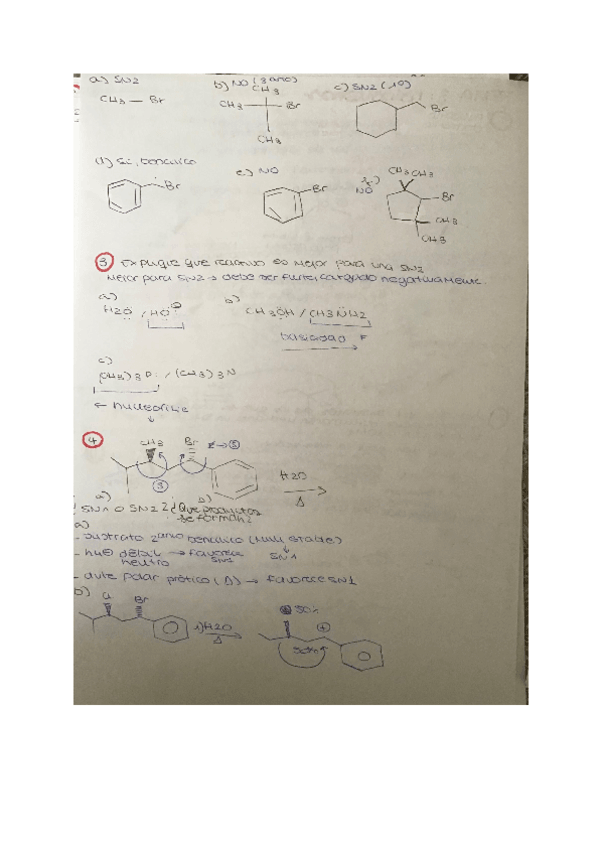 a) SN2
b) NO (3ario)
c) SN2 (1º)
CH3 — Br
CH3
CH3 Br
CH3
Br
d) Si, bencilico
e) NO
f)
NO
Br
Br
CH3 CH3
Br
CH3
CH3
3 Explique que reactivo es mejor para una SN2
Mejor para SN2 → debe ser fuerte, cargado negativamente.
a)
H2O / HO⊖
b)
CH3OH / CH3NH2
basicidad
c)
(CH3)3P: / (CH3)3N
← nucleofilie
4
CH3 Br
R → S
S
H2O
Δ
a) b)
SN1 O SN2? ¿Que productos
se forman?
a)
- sustrato 2ario bencilico (muy estable)
- nu⊖ débil → favorece SN1
neutro SN1
- dvte polar prótico (Δ) → favorece SN1
b) Cl Br
1) H2O
Δ
+